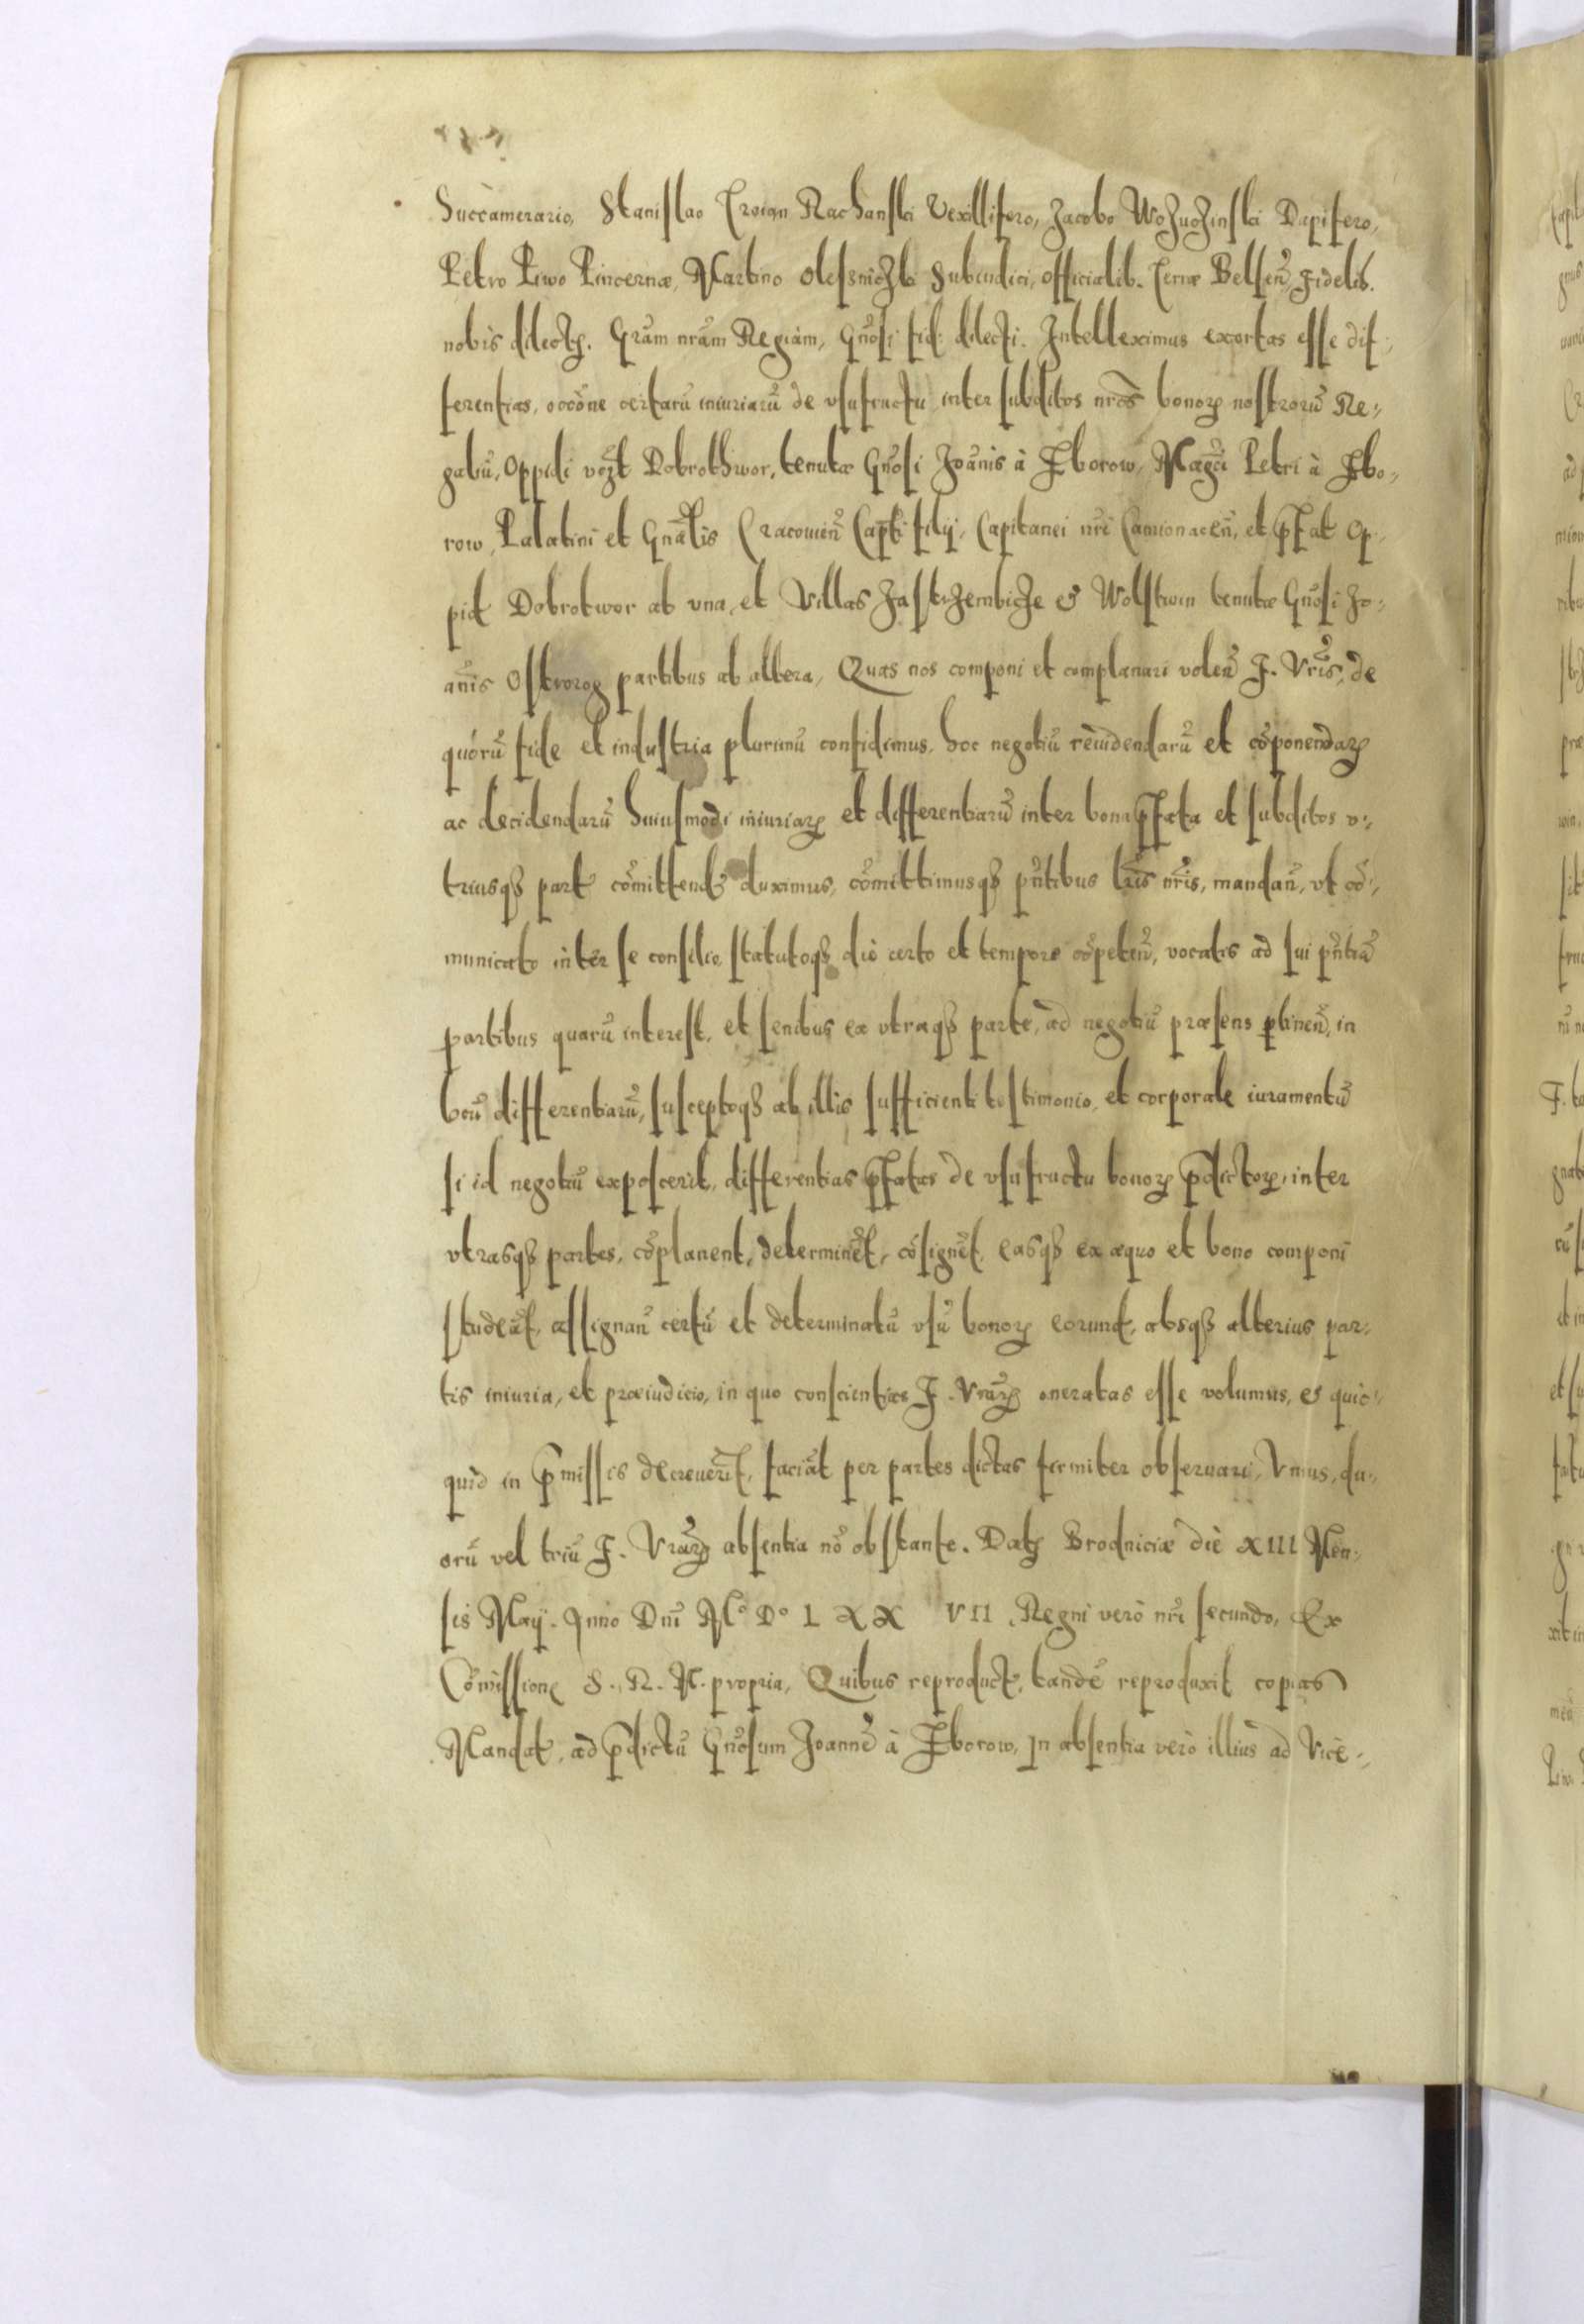 Succamerario, Stanislao Troian Rachanski Vexillifero, Jacobo Dapifero,
Petro Piwo Pincernæ, Martino Subiudici, officialib. Terræ Belsen̄, Fidelib.
nobis dilectȝ. Grãm nrãm Regiam, Gnõsi fid: dilecti. Intelleximus exortas esse dif-,
ferentias, occõne certarũ iniuriarũ de vsufructu inter subditos nrõs bonorꝝ nostrorũ Re-,
galiũ, Oppidi Dobrothwor, tenutæ Gnõsi Joãnis à Zborow, Magci Petri à Zbo-,
row, Palatini et Gnãlis Cracouien̄ Capti filij, Capitanei nrĩ Camionacen̄, et p̄fat Op-
pid Dobrotwor ab vna, et Villas Jastrzembicze & Wolswin tenutæ Gnõsi Jo-,
anĩs Ostrorog partibus ab altera, Quas nos componi et complanari volen̄ F. Vrĩs, de
quorũ fide et industria plurimũ confidimus, hoc negotiũ reuidendarũ et cõponendarꝝ
ac decidendarũ huiusmodi iniuriarꝝ et differentiarũ inter bona p̄fata et subditos v-,
triusqꝫ part cõmittend duximus, cõmittimusqꝫ pñtibus lrĩs nrĩs, mandan̄, vt cõ-,
municato inter se consilio, statutoqꝫ die certo et tempore cõpeten̄, vocatis ad sui pñtiã
partibus quarũ interest, et senibus ex vtraqꝫ parte, ad negotiũ præsens ꝑtinen̄, in
locũ differentiarũ, susceptoqꝫ ab illis sufficienti testimonio, et corporale iuramentũ
si id negotiũ exposcerit, differentias p̄fatas de vsufructu bonorꝝ p̄dictorꝝ, inter
vtrasqꝫ partes, cõplanent, determinẽt, cõsignẽt, easqꝫ ex æquo et bono componi
studeãt, assignan̄ certũ et determinatũ vsũ bonorꝝ eorund, absqꝫ alterius par-,
tis iniuria, et præiudicio, in quo conscientias F. Vrarꝝ oneratas esse volumus, & quic-,
quid in p̄missis decreuerĩt, faciãt per partes dictas firmiter obseruari, Vnius, du-,
orũ vel triũ F. Vrarꝝ absentia nõ obstante. Datȝ Brodniciæ die XIII Men-,
sis Maij. Anno Dnĩ M° D° L X X VII Regni vero nrĩ secundo, Ex
Cõmissione S. R. M. propria, Quibus reproduct, tandẽ reproduxit copias
Mandat, ad p̄dictũ Gnõsum Joannẽ à Zborow, In absentia vero illius ad Vice-,